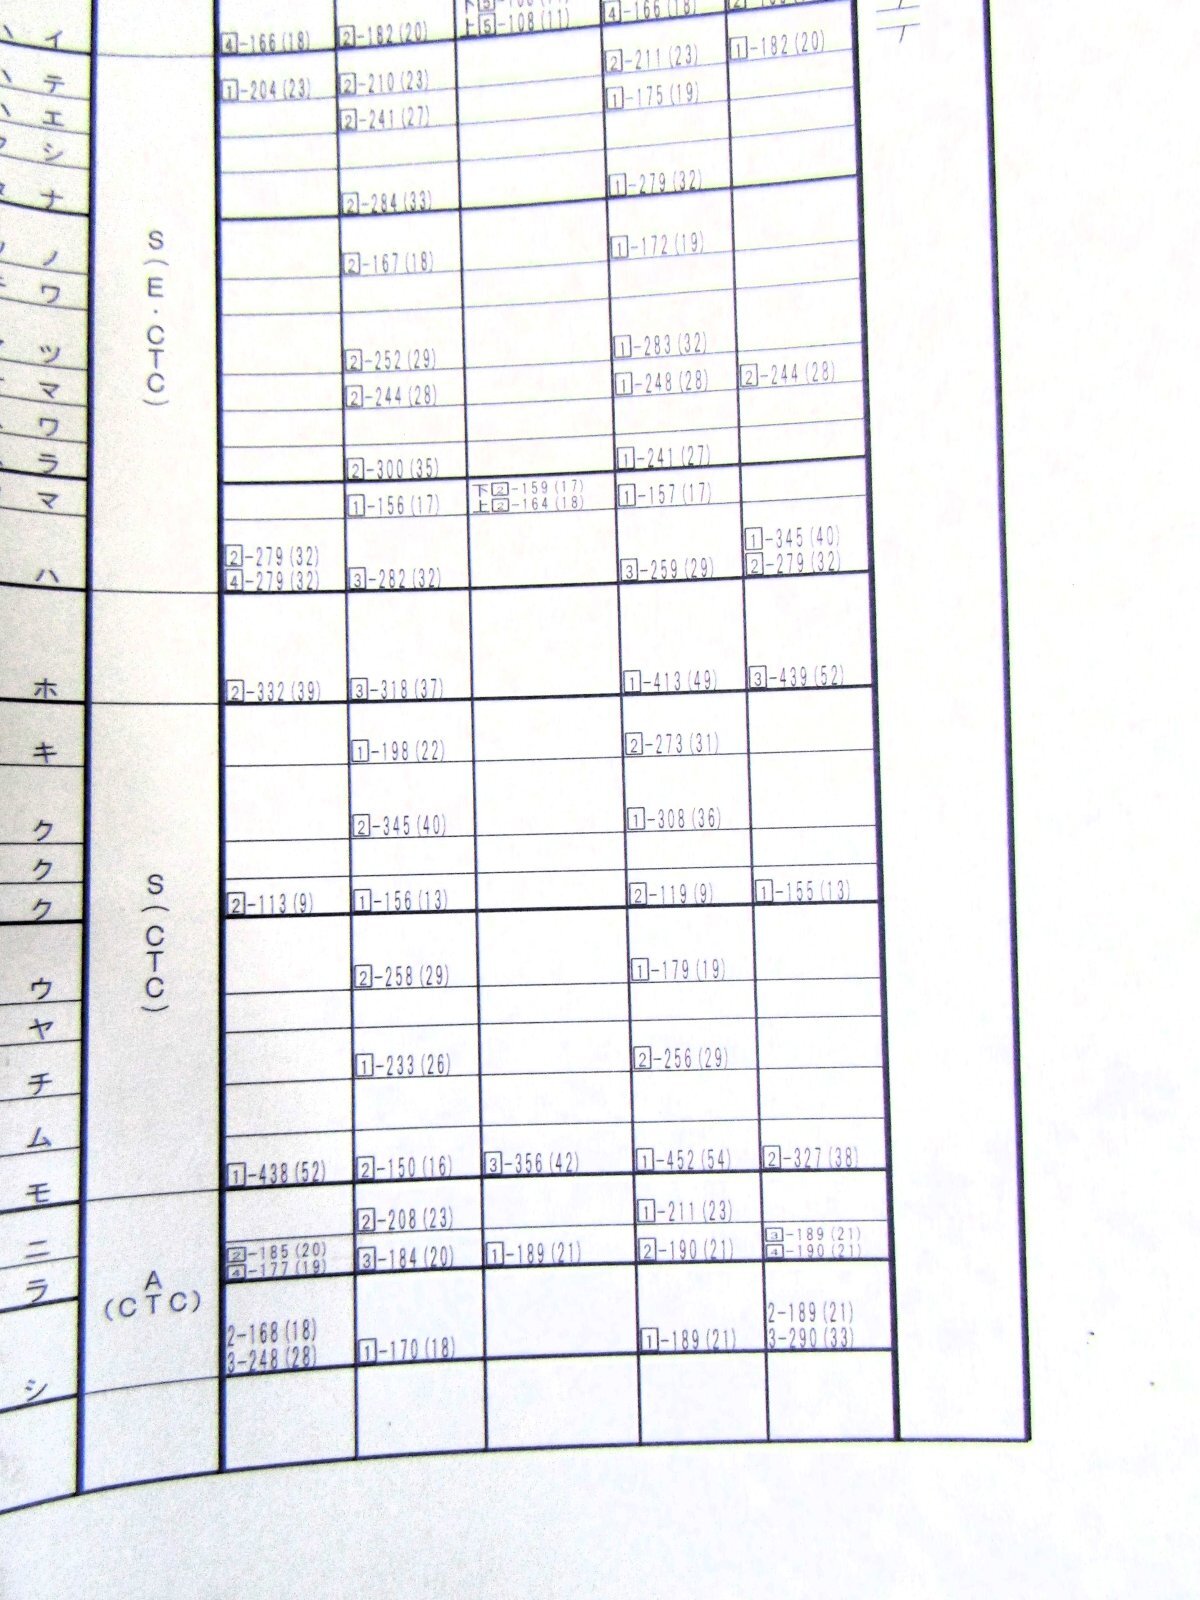 イ 4-166(18) 2-182(20) 上5-108(11) 4-166(18)
テ 1-204(23) 2-210(23) 2-211(23) 1-182(20)
エ 2-241(27) 1-175(19)
シ
ナ 2-284(33) 1-279(32)
ノ 2-167(18) 1-172(19)
ワ
ツ 2-252(29) 1-283(32)
マ 2-244(28) 1-248(28) 2-244(28)
ワ
ラ 2-300(35) 1-241(27)
マ 1-156(17) 下2-159(17) 1-157(17)
上2-164(18)
2-279(32) 1-345(40)
ハ 4-279(32) 3-282(32) 3-259(29) 2-279(32)
S(E・CTC)
ホ 2-332(39) 3-318(37) 1-413(49) 3-439(52)
キ 1-198(22) 2-273(31)
ク 2-345(40) 1-308(36)
ク
ク 2-113(9) 1-156(13) 2-119(9) 1-155(13)
S(CTC)
ウ 2-258(29) 1-179(19)
ヤ
チ 1-233(26) 2-256(29)
ム
モ 1-438(52) 2-150(16) 3-356(42) 1-452(54) 2-327(38)
ニ 2-208(23) 1-211(23)
2-185(20) 3-189(21)
ラ 4-177(19) 3-184(20) 1-189(21) 2-190(21) 4-190(21)
A
(CTC)
2-168(18) 2-189(21)
シ 3-248(28) 1-170(18) 1-189(21) 3-290(33)